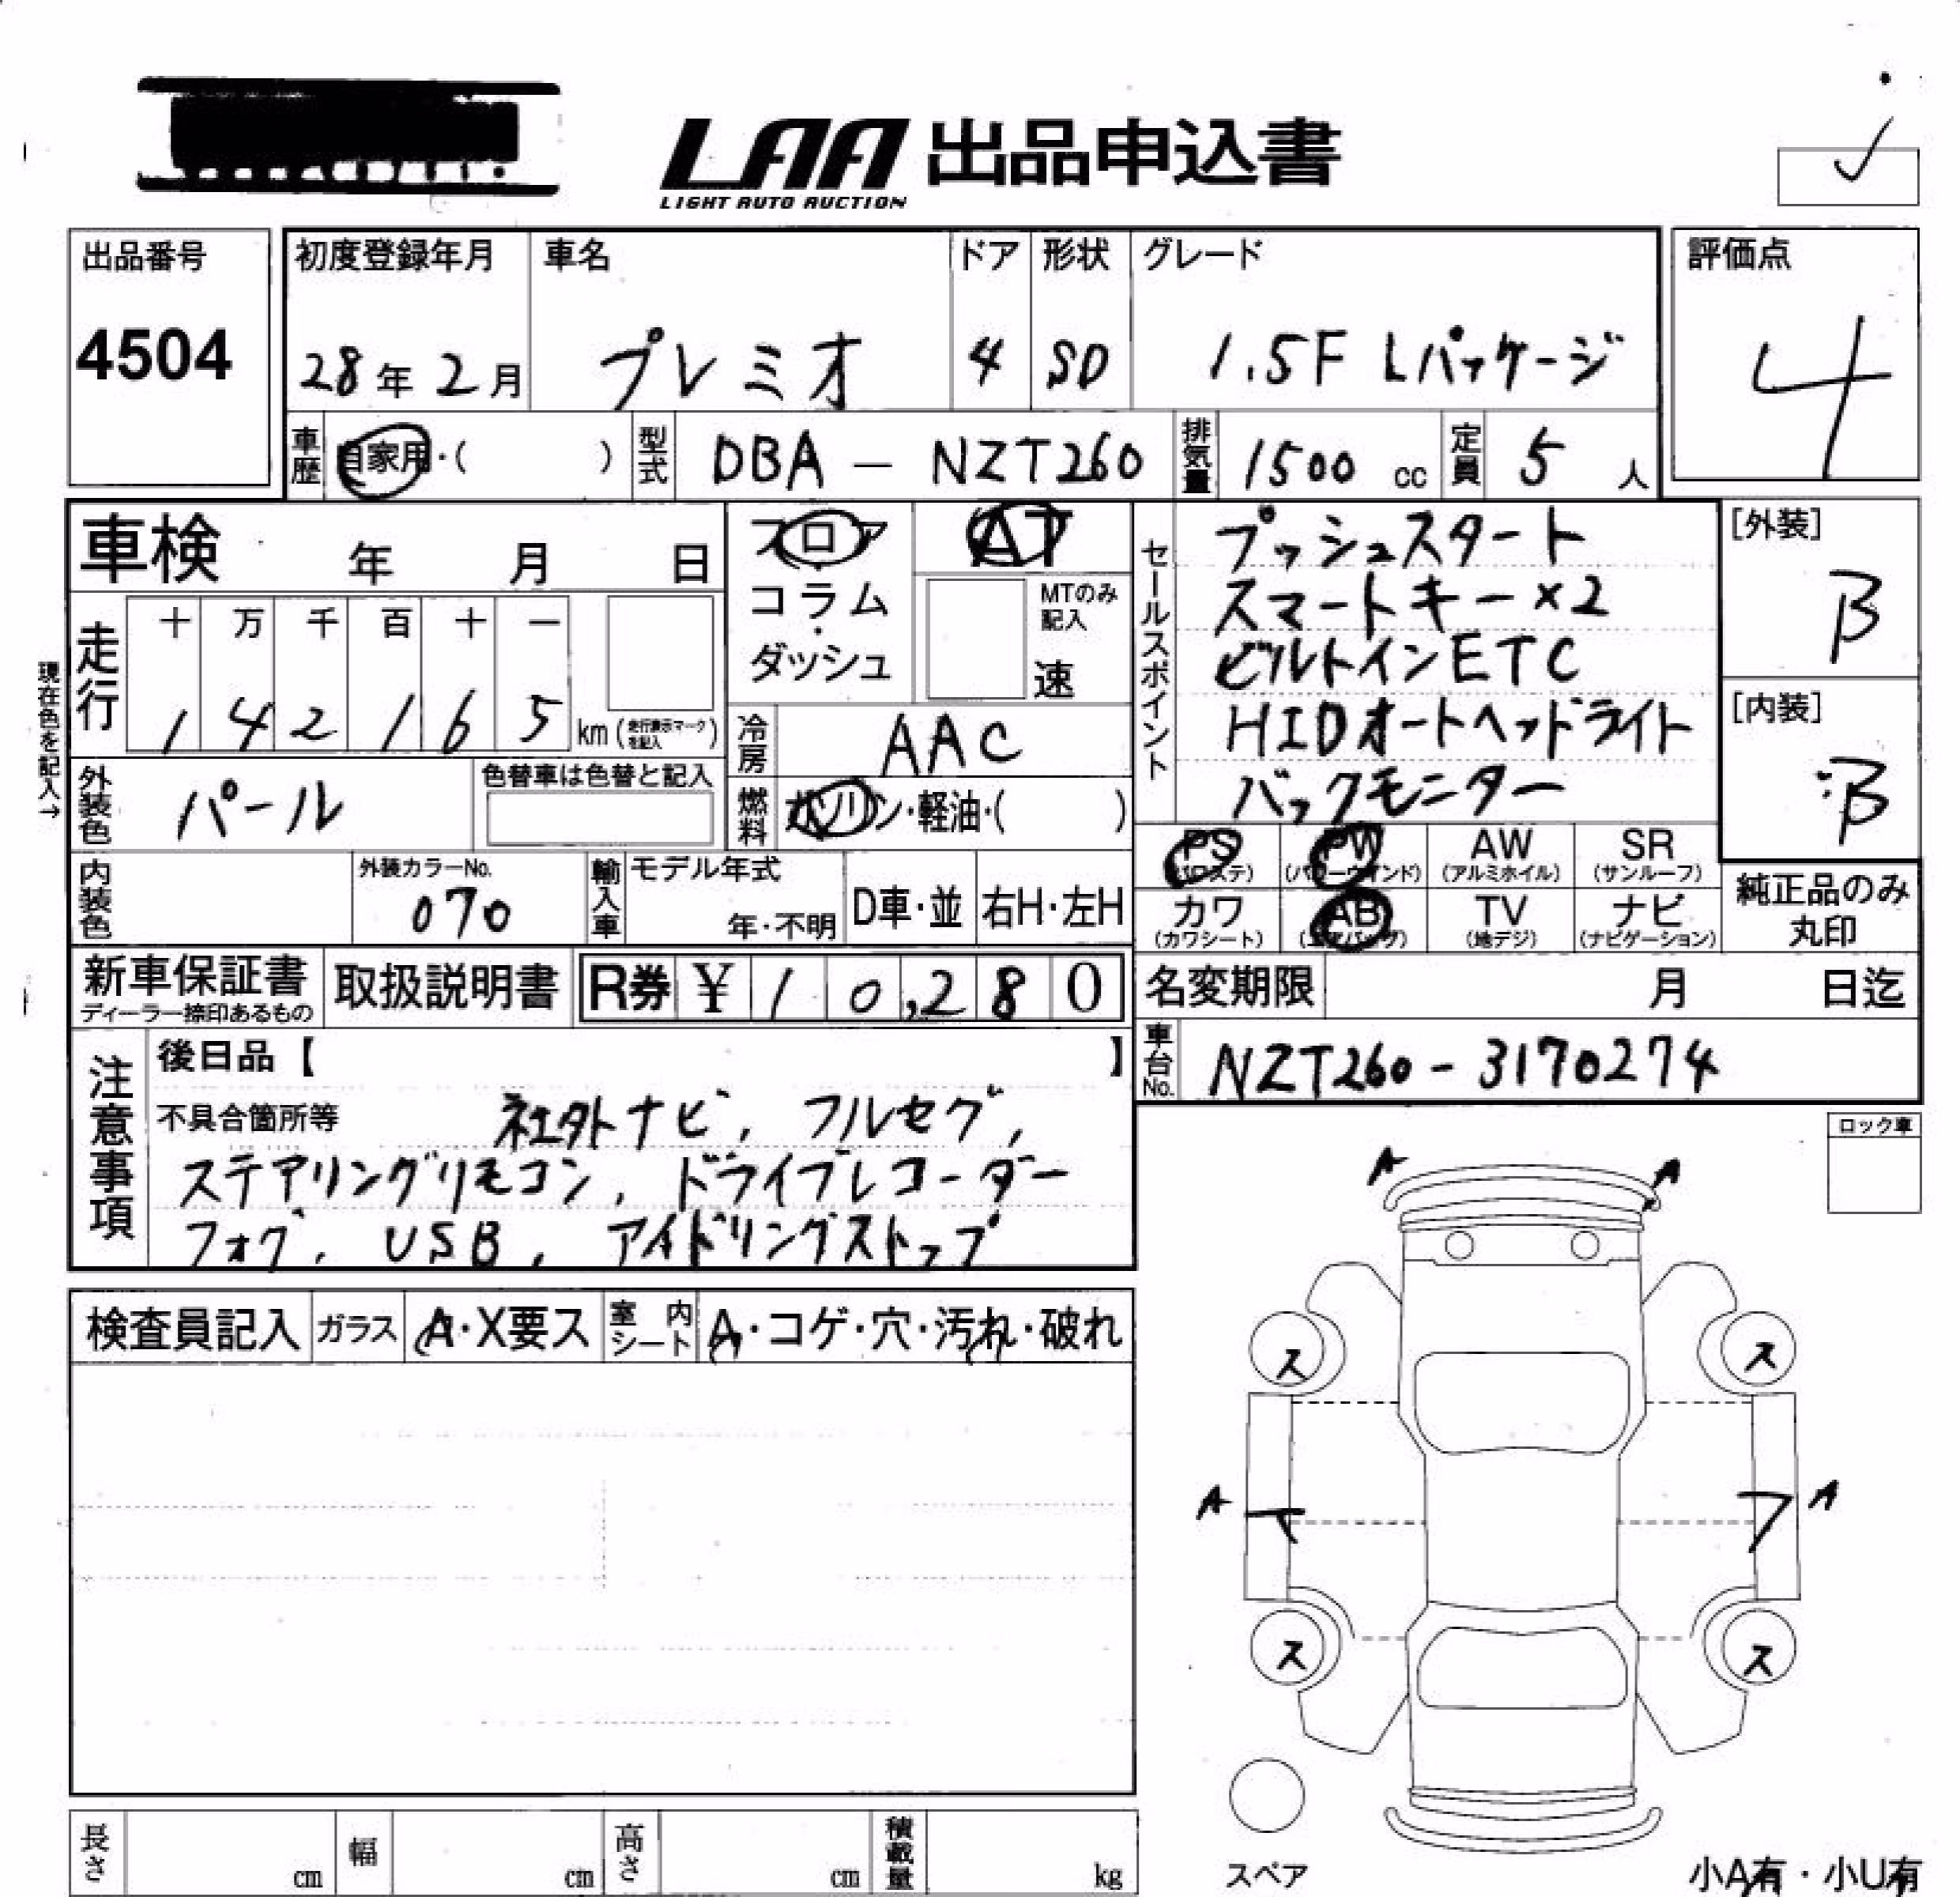 LAA 出品申込書
LIGHT AUTO AUCTION
出品番号 4504
初度登録年月 28年2月
車名 プレミオ
ドア 4
形状 SD
グレード 1.5F Lパッケージ
評価点 4
車歴 自家用・( )
型式 DBA - NZT260
排気量 1500 cc
定員 5 人
車検 年 月 日
フロア・コラム・ダッシュ
AT
MTのみ記入 速
セールスポイント
プッシュスタート
スマートキー×2
ビルトインETC
HIDオートヘッドライト
バックモニター
[外装] B
[内装] B
現在色を記入→
走行 十 万 千 百 十 一
1 4 2 1 6 5 km (走行表示マークを記入)
冷房 AAC
外装色 パール
色替車は色替と記入
燃料 ガソリン・軽油・( )
PS (パワステ) PW (パワーウインド) AW (アルミホイル) SR (サンルーフ)
カワ (カワシート) AB (エアバッグ) TV (地デジ) ナビ (ナビゲーション)
純正品のみ
丸印
内装色
外装カラーNo. 070
輸入車 モデル年式 年・不明 D車・並 右H・左H
新車保証書
ディーラー捺印あるもの
取扱説明書
R券 ¥ 10,280
名変期限 月 日迄
車台No. NZT260-3170274
注意事項
後日品【 】
不具合箇所等 社外ナビ, フルセグ,
ステアリングリモコン, ドライブレコーダー
フォグ, USB, アイドリングストップ
ロック車
検査員記入 ガラス A・X要ス 室内シート A・コゲ・穴・汚れ・破れ
A A
ス ス
A A
ス ス
スペア
小A有・小U有
長さ cm 幅 cm 高さ cm 積載量 kg